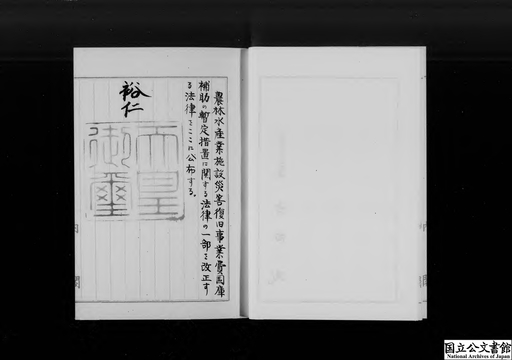 農林水産業施設災害復旧事業費国庫
補助の暫定措置に関する法律の一部を改正す
る法律をここに公布する。
裕仁
天皇
御璽
内閣
国立公文書館
National Archives of Japan